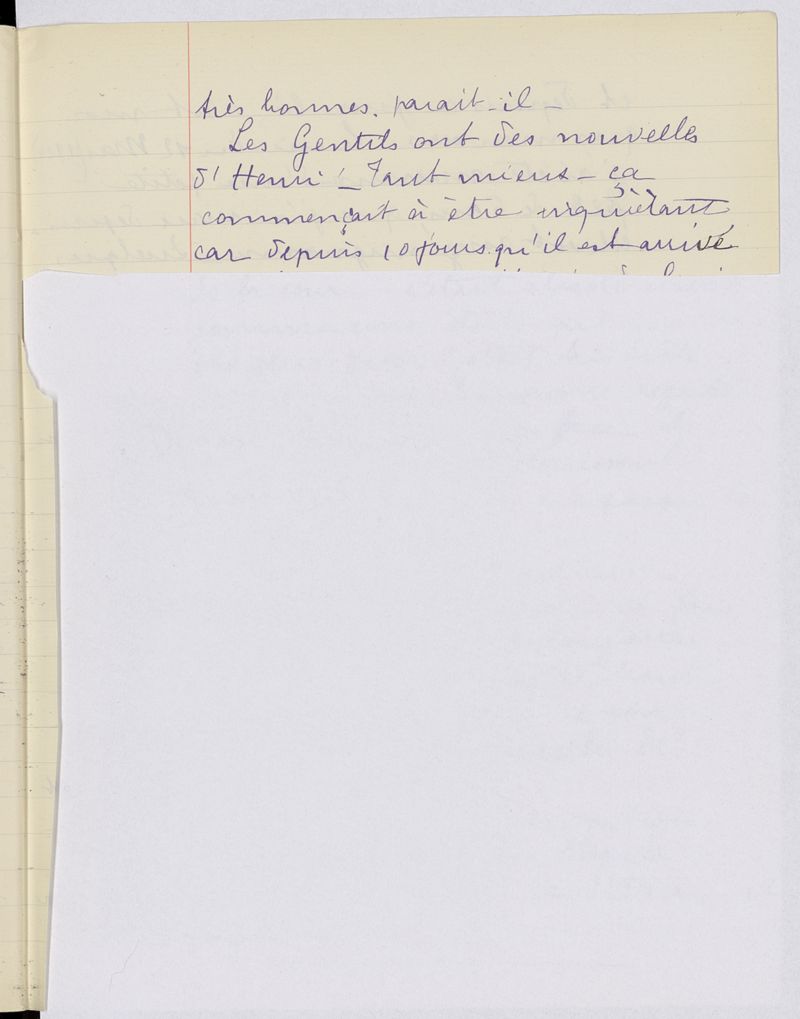 très bonnes, paraît-il –
Les Gentils ont des nouvelles
d'Henri – Tant mieux – ça
commençait à être inquiétant
car depuis 10 jours qu'il est arrivé